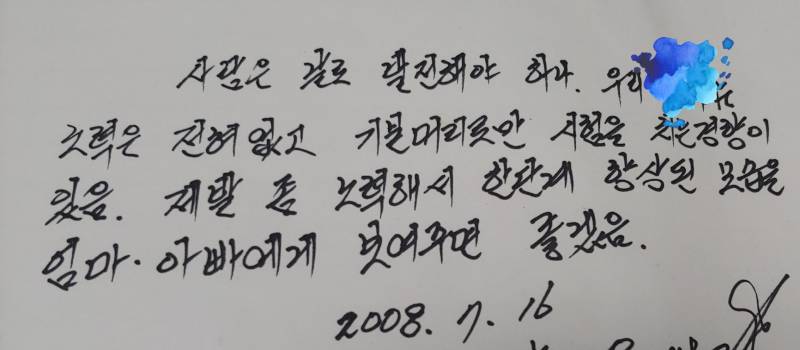 사람은 갈로 발전해야 하다. 우리
노력은 전혀없고 기본머리로만 시험을 치는경향이
있음. 제발 좀 노력해서 한단계 향상된 모습을
엄마·아빠에게 보여주면 좋겠음.
2008. 7. 16